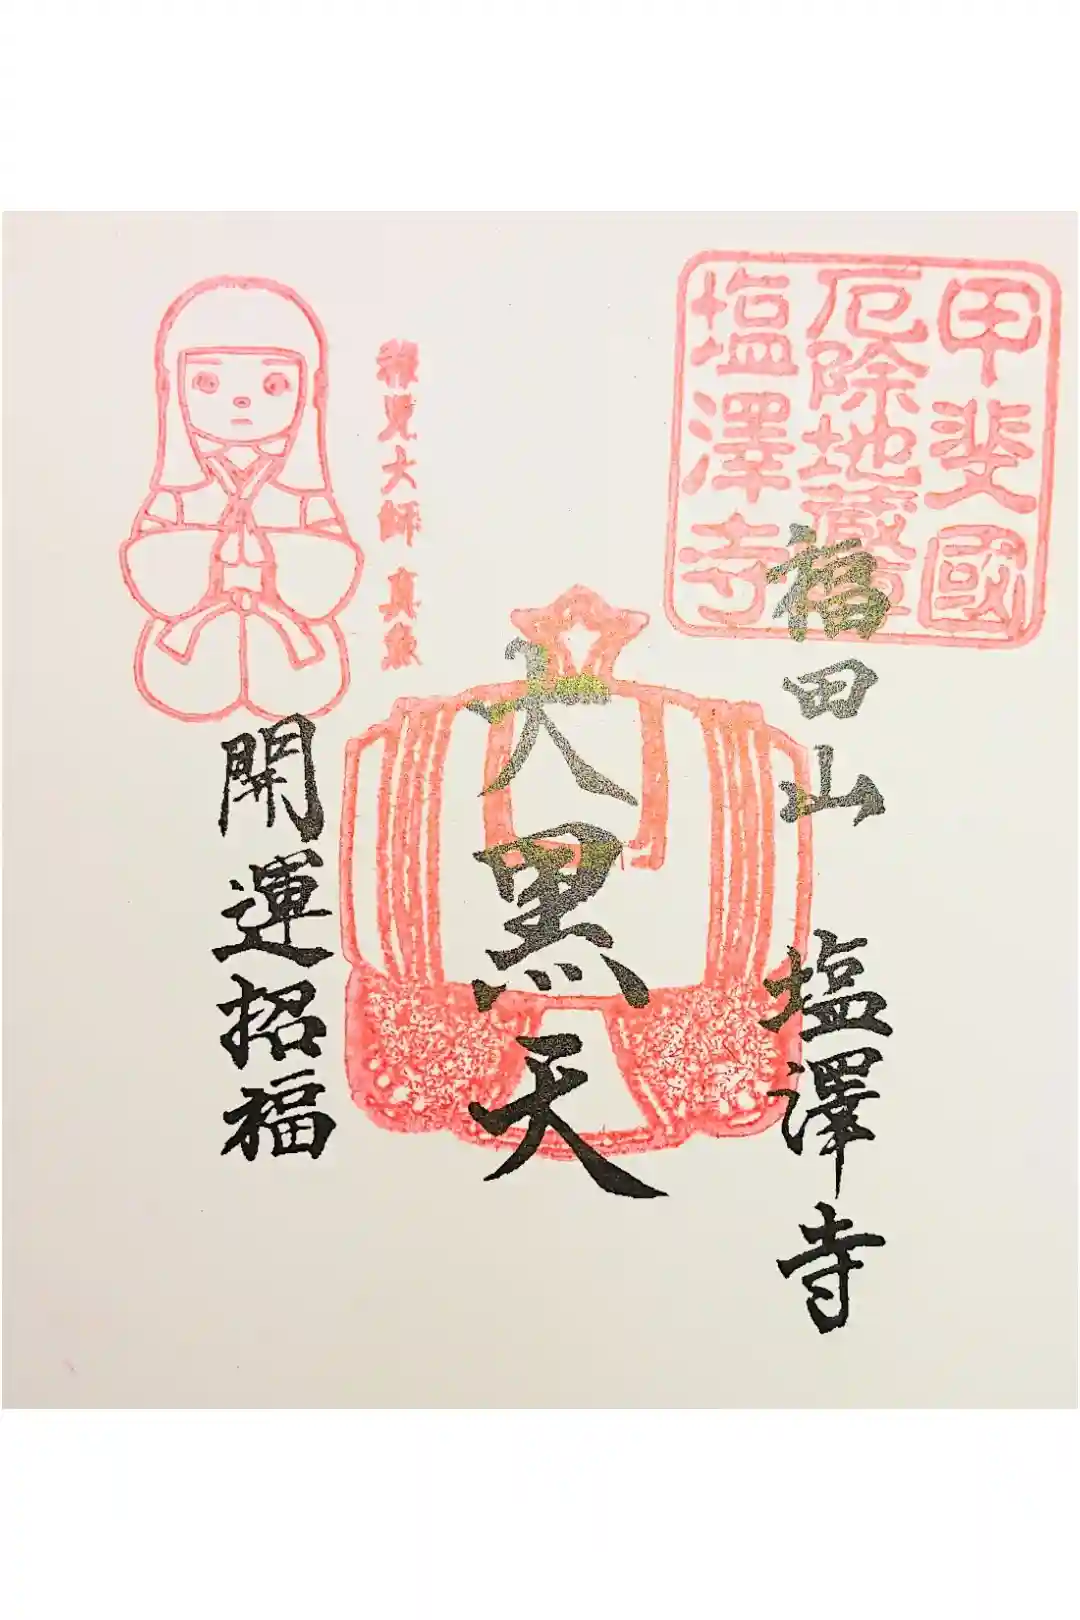 甲斐國
厄除地蔵尊
塩澤寺
福田山 塩澤寺
大黒天
稚児大師 真魚
開運招福